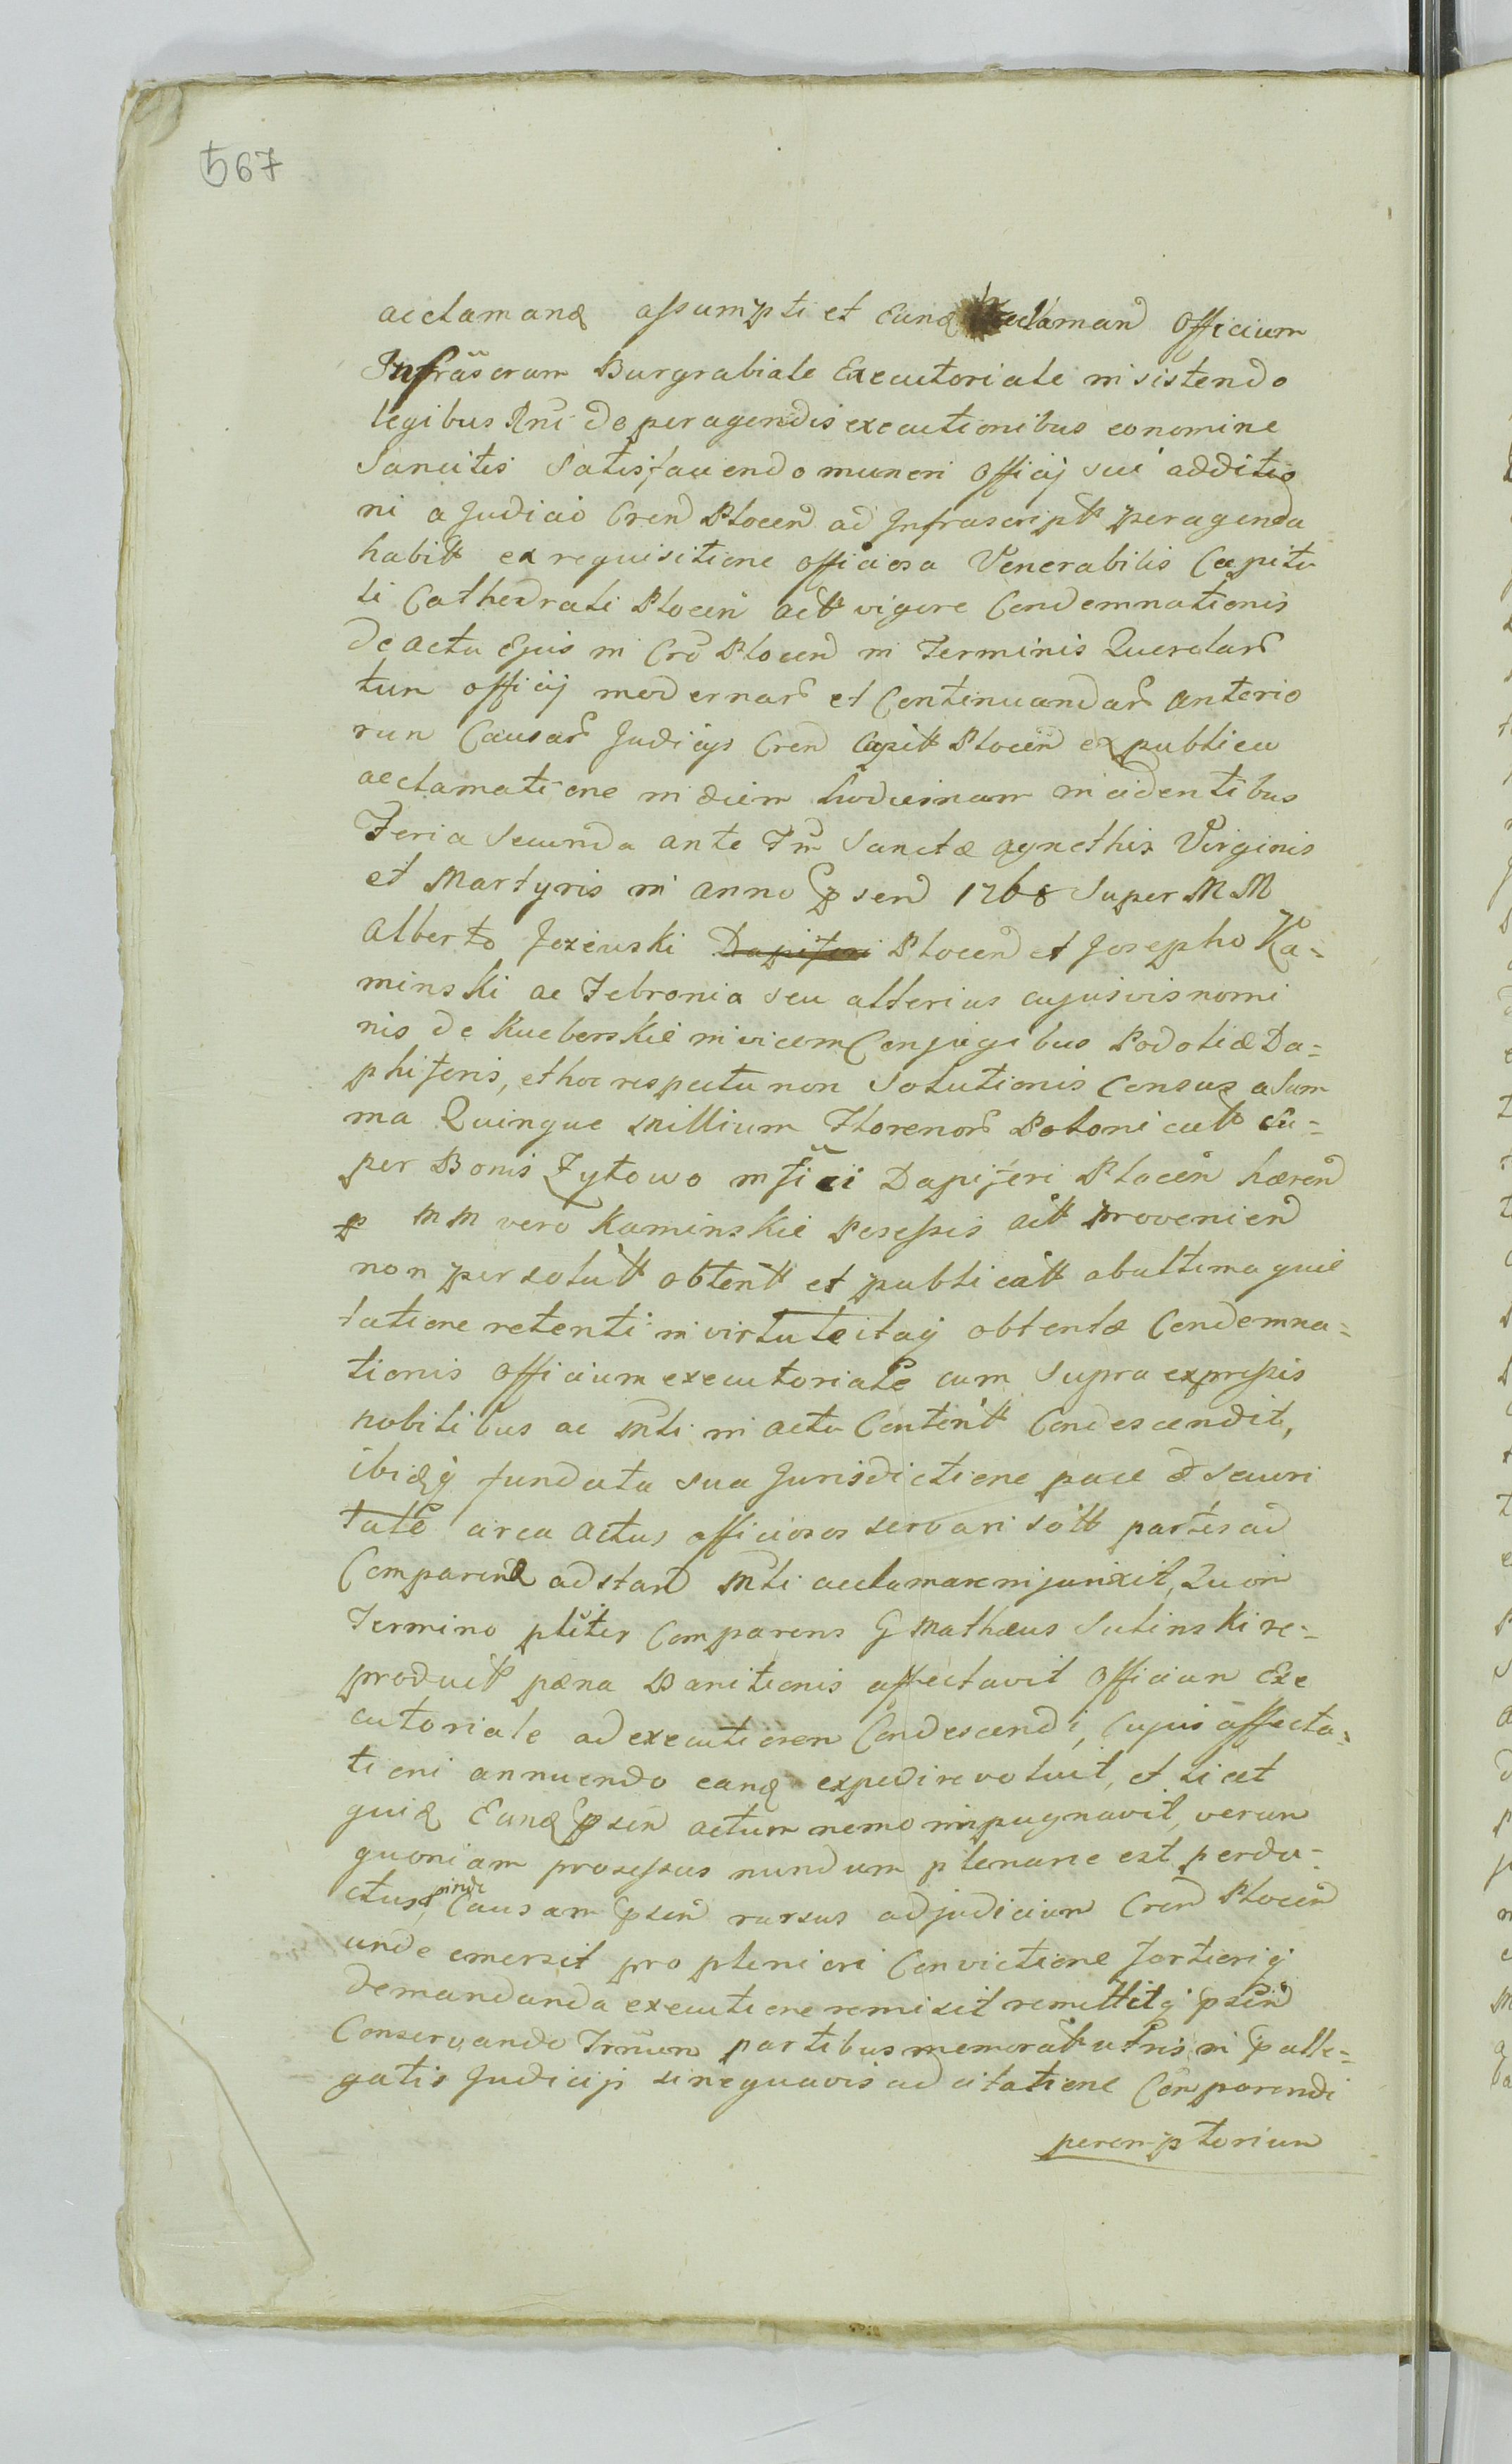 567
acclamand assumpti et Eund acclamand Officium
Infrascrum Burgrabiale Executoriale insistendo
legibus Rni de peragendis executionibus eo nomine
Sancitis Satisfaciendo muneri Officij sui additio
ni a Judicio Cren Plocen ad Infrascriptt peragenda
habitt ex requisitione officiosa Venerabilis Capitu
li Cathedrali Plocen actt vigore Condemnationis
de actu Ejus in Cro Plocen in Terminis Querelar
tum officij modernar et Continuandar anterio
rum Causar Judicijs Cren Capitt Plocen ex publica
acclamatione in diem hodiernam incidentibus
Feria Secunda ante Fm Sanctæ Agnethis Virginis
et Martyris in anno psen 1768 Super MM
Alberto Jozewski Dapiferi Plocen et Josepho Ka=
minski ac Febronia seu alterius cujusvis nomi
nis de Kuberskie invicem Conjugibus Podoliæ Da=
phiferis, et hoc respectu non Solutionis Census a Sum
ma Quinque Millium Florenor Polonicatt Su=
per Bonis Zytowo mfici Dapiferi Plocen hæren
p MM vero Kaminskie Posessis actt provenien
non persolutt obtentt et publicatt ab ultima quie
tatione retenti in virtute itaq obtentæ Condemna=
tionis Officium executoriale cum Supra expressis
nobilibus ac Mli in actu Contentt Condescendit,
ibidq fundata sua Jurisdictione pace & securi
tate circa Actus officiosos servari sott partes ad
Comparend adstand Mli acclamare injunxit, Quo in
Termino pliter Comparens G Mathæus Sulinski re=
produxtt pæna Banitionis affectavit Officium Exe
cutoriale ad executionem Condescendi, Cujus affecta=
tioni annuendo eand expedire voluit, et licet
quid Eund psen actum nemo impugnavit, verum
quoniam processus nundum plenarie est perdu=
ctus, pinde Causam psen rursus ad judicium Cren Plocen
unde emersit pro pleniori Convictione fortiorij
demandanda executione remisit remittitq psen
Conservando Trmum partibus memoratt utris in palle=
gatis Judicijs sine quavis adcitatione Comparendi
peremptorium